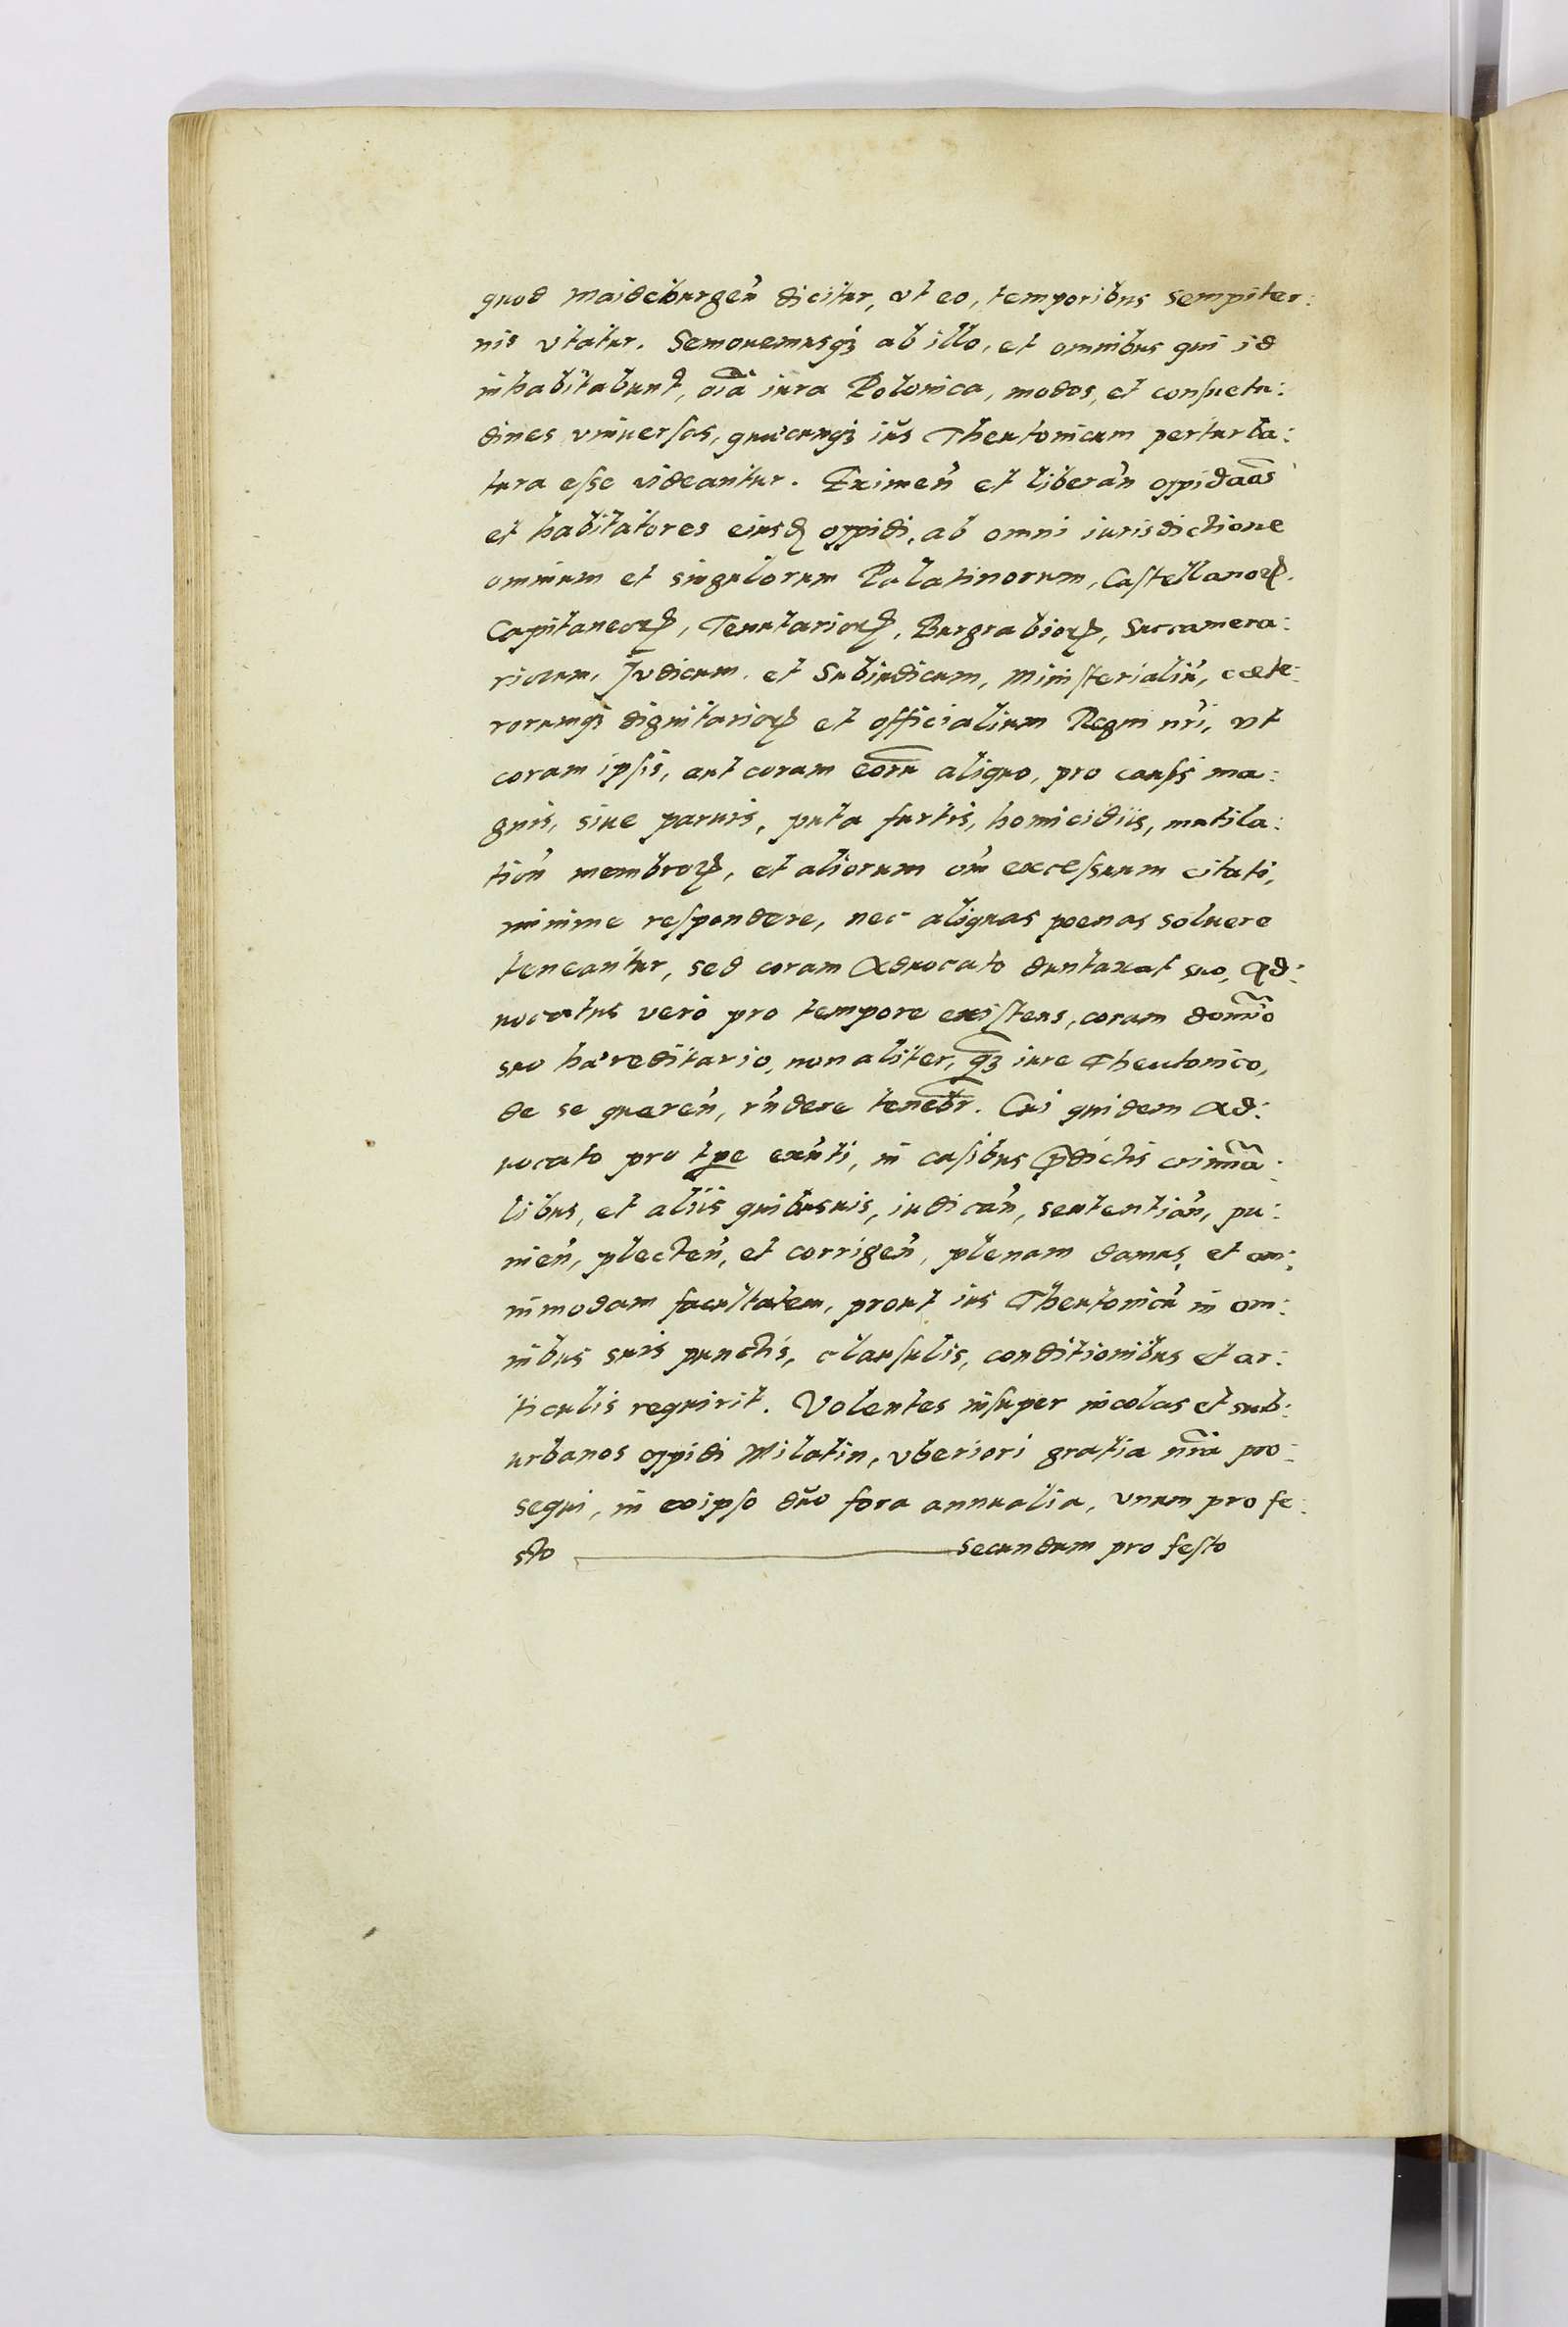 quod Maideburgeñ dicitur, vt eo, temporibus sempiter:
nis vtatur. Semouemusqꝫ ab illo, et omnibus qui id
inhabitabunt, oĩa iura Polonica, modos, et consuetu:
dines vniuersas, quæcunqꝫ ius Theutonicum perturba:
tura esse videantur. Eximeñ et liberañ oppidãos
et habitatores eiusd oppidi, ab omni iurisdictione
omnium et singulorum Palatinorum, Castellanoꝝ.
Capitaneoꝝ, Tenutarioꝝ, Burgrabioꝝ, Succamera:
riorum, Judicum, et Subiudicum, Ministerialiũ, cæte:
rorumqꝫ dignitarioꝝ et officialium Regni nr̃i, vt
coram ipsis, aut coram eorũ aliquo, pro causis ma:
gnis, siue paruis, puta furtis, homicidiis, mutila:
tioñ membroꝝ, et aliorum om̃ excessuum citati,
minime respondere, nec aliquas poenas soluere
teneantur, sed coram Aduocato duntaxat suo, Ad:
uocatus verò pro tempore existens, coram domĩo
suo hæreditario, non aliter, qꝫ iure Theutonico,
de se quereñ, rñdere tenebr̃. Cui quidem Ad:
uocato pro tp̃e exñti, in casibus p̃dictis crimĩa:
libus, et aliis quibusuis, iudicañ, sententiañ, pu:
nieñ, plecteñ, et corrigeñ, plenam damus, et om:
nimodam facultatem, prout ius Theutonicũ in om:
nibus suis punctis, clausulis, conditionibus et ar:
ticulis requirit. Volentes insuper incolas et sub:
urbanos oppidi Milatin, vberiori gratia nr̃a pro:
sequi, in eoipso duo fora annualia, vnum pro fe:
sto secundum pro festo